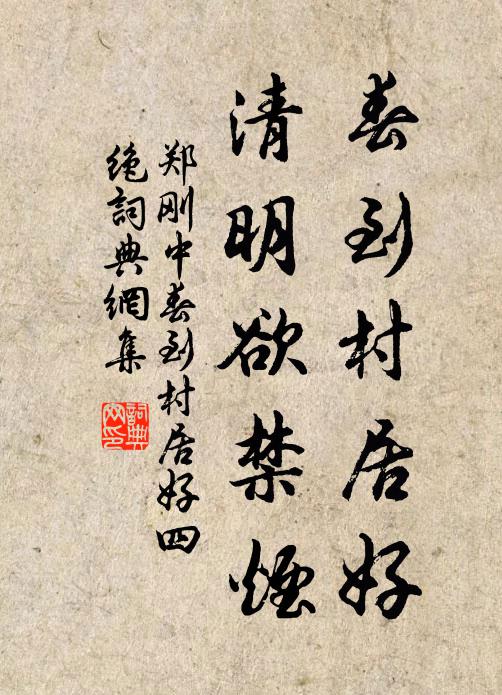 春到村居好
清明欲禁煙
郑刚中春到村居好四
绝詞典網集
詞典
网印